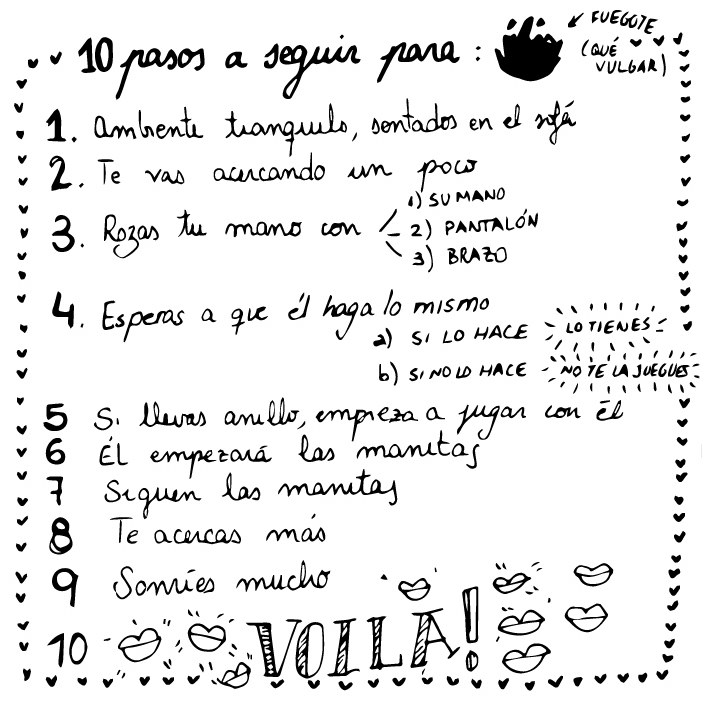 10 pasos a seguir para :
FUEGOTE
(QUÉ
VULGAR)
1. Ambiente tranquilo, sentados en el sofá
2. Te vas acercando un poco
3. Rozas tu mano con
1) SU MANO
2) PANTALÓN
3) BRAZO
4. Esperas a que él haga lo mismo
a) SI LO HACE LO TIENES
b) SI NO LO HACE NO TE LA JUEGUES
5 Si llevas anillo, empieza a jugar con él
6 ÉL empezará las manitas
7 Siguen las manitas
8 Te acercas más
9 Sonríes mucho
10 VOILÀ!